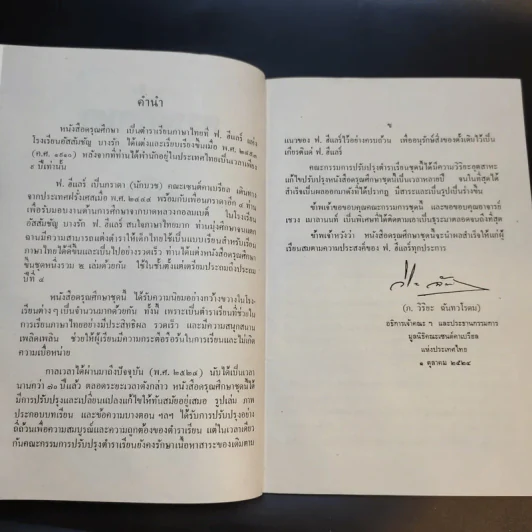 คำนำ
หนังสือดรุณศึกษา เป็นตำราเรียนภาษาไทยที่ ฟ. ฮีแลร์ แห่ง
โรงเรียนอัสสัมชัญ บางรัก ได้แต่งและเรียบเรียงขึ้นเมื่อ พ.ศ. ๒๔๕๓
(ค.ศ. ๑๙๑๐) หลังจากที่ท่านได้พำนักอยู่ในประเทศไทยเป็นเวลาเพียง
๙ ปีเท่านั้น
ฟ. ฮีแลร์ เป็นภราดา (นักบวช) คณะเซนต์คาเบรียล เดินทาง
จากประเทศฝรั่งเศสเมื่อ พ.ศ. ๒๔๔๔ พร้อมกับเพื่อนภราดาอีก ๔ ท่าน
เพื่อรับมอบงานด้านการศึกษาจากบาดหลวงกอลมเบต์ ในโรงเรียน
อัสสัมชัญ บางรัก ฟ. ฮีแลร์ สนใจภาษาไทยมาก ท่านมุ่งศึกษาจนแตก
ฉานมีความสามารถแต่งตำราให้เด็กไทยใช้เป็นแบบเรียนสำหรับเรียน
ภาษาไทยได้ดีขึ้นและเป็นไปอย่างรวดเร็ว ท่านได้แต่งหนังสือดรุณศึกษา
ขึ้นชุดหนึ่งรวม ๕ เล่มด้วยกัน ใช้ในชั้นตั้งแต่เตรียมประถมถึงประถม
ปีที่ ๔
หนังสือดรุณศึกษาชุดนี้ ได้รับความนิยมอย่างกว้างขวางในโรง-
เรียนต่าง ๆ เป็นจำนวนมากด้วยกัน ทั้งนี้ เพราะเป็นตำราเรียนที่ช่วยใน
การเรียนภาษาไทยอย่างมีประสิทธิผล รวดเร็ว และมีความสนุกสนาน
เพลิดเพลิน ช่วยให้ผู้เรียนมีความกระตือรือร้นในการเรียนและไม่เกิด
ความเบื่อหน่าย
กาลเวลาได้ผ่านมาถึงปัจจุบัน (พ.ศ. ๒๕๒๔) นับได้เป็นเวลา
นานกว่า ๗๐ ปีแล้ว ตลอดระยะเวลาดังกล่าว หนังสือดรุณศึกษาชุดนี้ได้
มีการปรับปรุงและเปลี่ยนแปลงแก้ไขให้ทันสมัยอยู่เสมอ รูปเล่ม ภาพ
ประกอบบทเรียน และข้อความบางตอน ฯลฯ ได้รับการปรับปรุงอย่าง
ถี่ถ้วนเพื่อความสมบูรณ์และความถูกต้องของตำราเรียน แต่ในเวลาเดียว
กันคณะกรรมการปรับปรุงตำราเรียนยังคงรักษาเนื้อหาสาระของเดิมตาม
ข
แนวของ ฟ. ฮีแลร์ไว้อย่างครบถ้วน เพื่ออนุรักษ์สิ่งของดั้งเดิมไว้เป็น
เกียรติแด่ ฟ. ฮีแลร์
คณะกรรมการปรับปรุงตำราเรียนชุดนี้ได้มีความวิริยะอุตสาหะ
แก้ไขปรับปรุงหนังสือดรุณศึกษาชุดนี้เป็นเวลาหลายปี จนในที่สุดได้
สำเร็จเป็นผลออกมาดังที่ได้ปรากฏ มีสาระและเป็นรูปเป็นร่างขึ้น
ข้าพเจ้าขอขอบคุณคณะกรรมการชุดนี้ และขอขอบคุณอาจารย์
เชวง
เป็นพิเศษที่ได้ติดตามเอาเป็นธุระมาตลอดจนถึงที่สุด
ข้าพเจ้าหวังว่า หนังสือดรุณศึกษาชุดนี้จะนำผลสำเร็จให้แก่ผู้
เรียนสมตามความประสงค์ของ ฟ. ฮีแลร์ทุกประการ
(ภ. วิริยะ ฉันทวโรดม)
อธิการเจ้าคณะ ฯ และประธานกรรมการ
มูลนิธิคณะเซนต์คาเบรียล
แห่งประเทศไทย
๑ ตุลาคม ๒๕๒๔